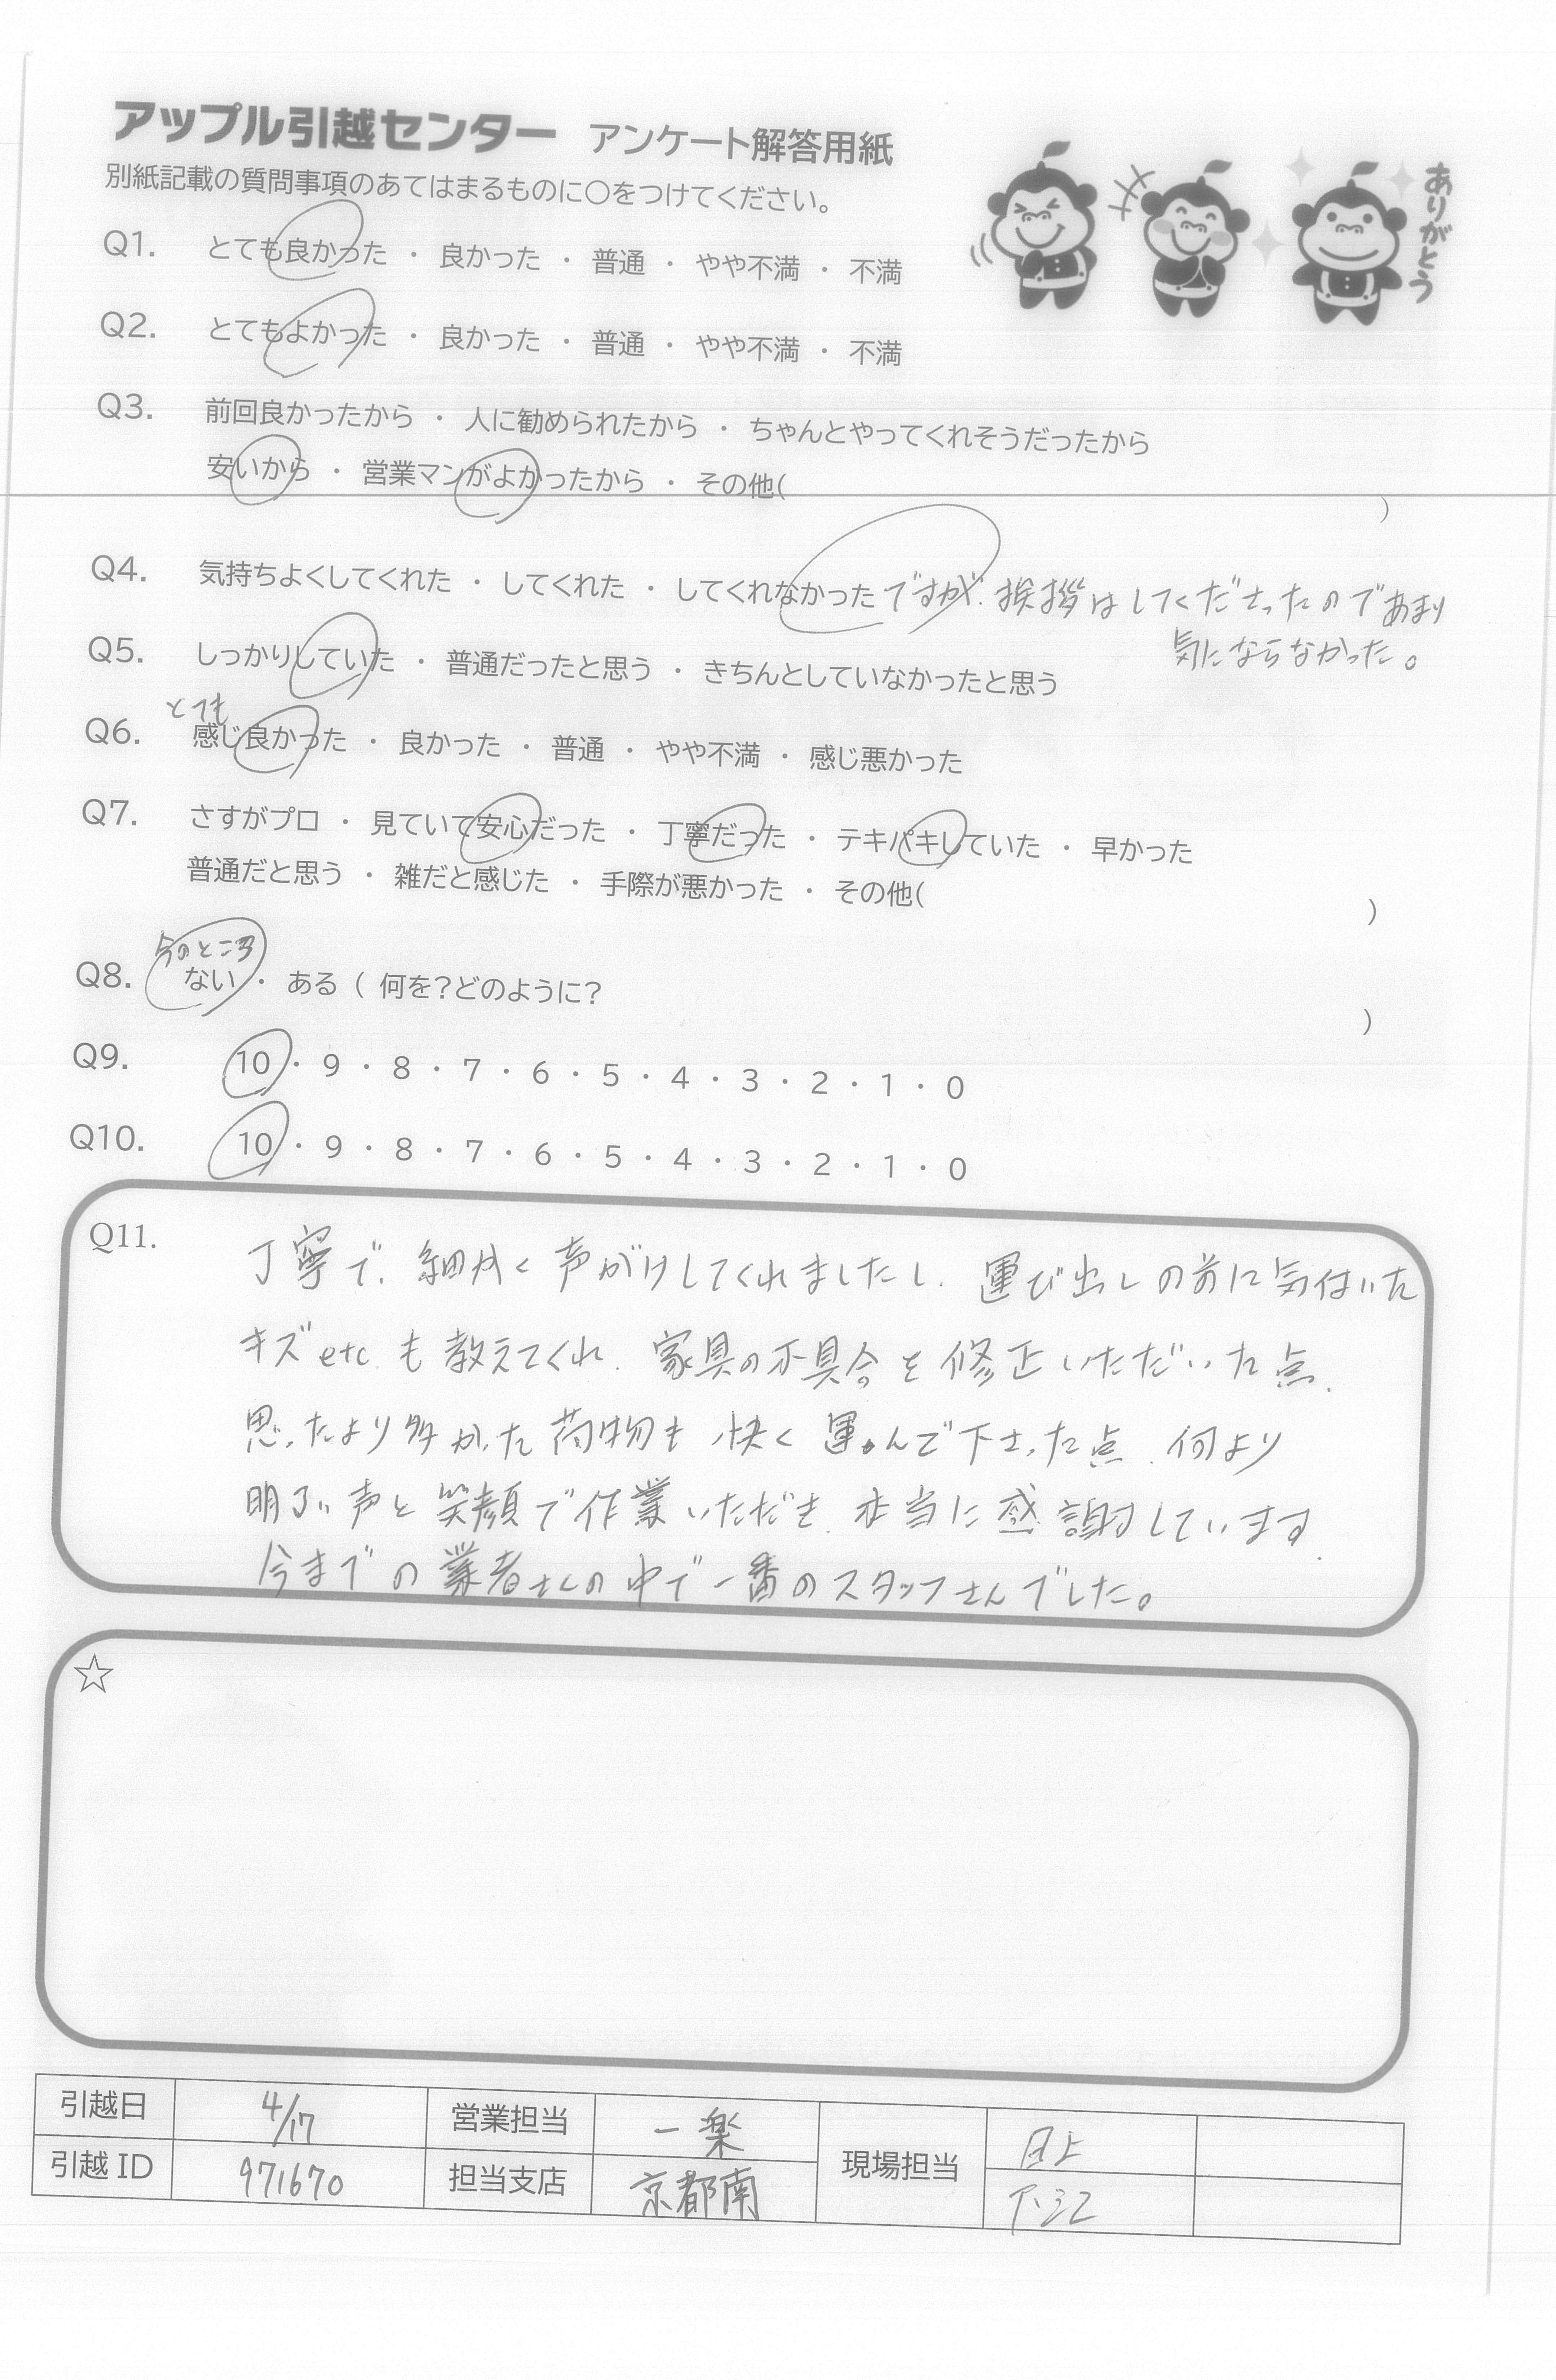 アップル引越センター アンケート解答用紙
別紙記載の質問事項のあてはまるものに○をつけてください。
ありがとう
Q1. とても良かった ・ 良かった ・ 普通 ・ やや不満 ・ 不満
Q2. とてもよかった ・ 良かった ・ 普通 ・ やや不満 ・ 不満
Q3. 前回良かったから ・ 人に勧められたから ・ ちゃんとやってくれそうだったから
安いから ・ 営業マンがよかったから ・ その他( )
Q4. 気持ちよくしてくれた ・ してくれた ・ してくれなかった ですが、挨拶はしてくださったのであまり
気にならなかった。
Q5. しっかりしていた ・ 普通だったと思う ・ きちんとしていなかったと思う
とても
Q6. 感じ良かった ・ 良かった ・ 普通 ・ やや不満 ・ 感じ悪かった
Q7. さすがプロ ・ 見ていて安心だった ・ 丁寧だった ・ テキパキしていた ・ 早かった
普通だと思う ・ 雑だと感じた ・ 手際が悪かった ・ その他( )
今のところ
Q8. ない ・ ある ( 何を?どのように? )
Q9. 10 ・ 9 ・ 8 ・ 7 ・ 6 ・ 5 ・ 4 ・ 3 ・ 2 ・ 1 ・ 0
Q10. 10 ・ 9 ・ 8 ・ 7 ・ 6 ・ 5 ・ 4 ・ 3 ・ 2 ・ 1 ・ 0
Q11. 丁寧で、細かく声がけしてくれましたし、運び出しの前に気付いた
キズetc.も教えてくれ、家具の不具合を修正いただいた点、
思ったより多かった荷物も快く運んで下さった点、何より
明るい声と笑顔で作業いただき、本当に感謝しています。
今までの業者さんの中で一番のスタッフさんでした。
☆
引越日 4/17 営業担当 一楽 現場担当
引越ID 971670 担当支店 京都南